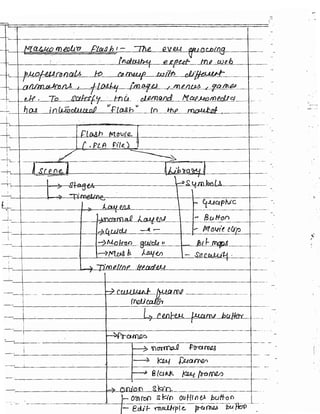 Macromedia Flash :- The ever growing
Industry expect the web
professionals to comeup with different
animations, flashy Images, menus, games
etc. To satisfy this demand Macromedia
has introduced "Flash" in the market.
Flash Movie
(.FLA File)
Scene
Library
→ Stages
→ Symbols
→ Timeline
- Graphic
→ Layers
- Button
→ normal Layers
- Movie clip
→ Guide -"-
→ Motion guide "
- Bit maps
→ Mask Layer
→ Timeline Headers
→ current frame
Indicator
↳ center frame button
→ Frames
→ normal Frames
→ Key frames
→ Blank Key frames
→ onion Skin
- onion skin outlines button
- Edit multiple frames button